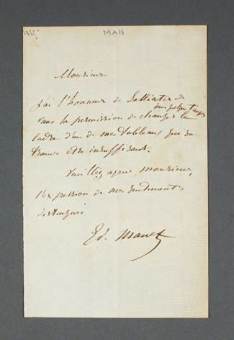 Monsieur
J'ai l'honneur de solliciter de
vous la permission de changer le
cadre d'un de mes tableaux que je
trouve être insuffisant.
Veuillez agréer, monsieur,
l'expression de mes sentiments
distingués
Ed. Manet